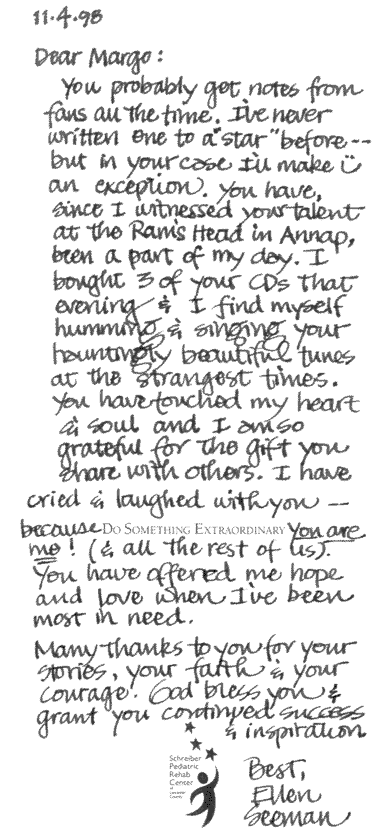 11.4.98
Dear Margo:
You probably get notes from
fans all the time. I've never
written one to a "star" before --
but in your case I'll make
an exception. You have,
since I witnessed your talent
at the Ram's Head in Annap,
been a part of my day. I
bought 3 of your CDs that
evening & I find myself
humming & singing your
hauntingly beautiful tunes
at the strangest times.
You have touched my heart
& soul and I am so
grateful for the gift you
share with others. I have
cried & laughed with you --
because DO SOMETHING EXTRAORDINARY You are
me! (& all the rest of us).
You have offered me hope
and love when I've been
most in need.
Many thanks to you for your
stories, your faith & your
courage. God bless you &
grant you continued success
& inspiration
Schreiber
Pediatric
Rehab
Center
of
Lancaster
County
Best,
Ellen
Seeman